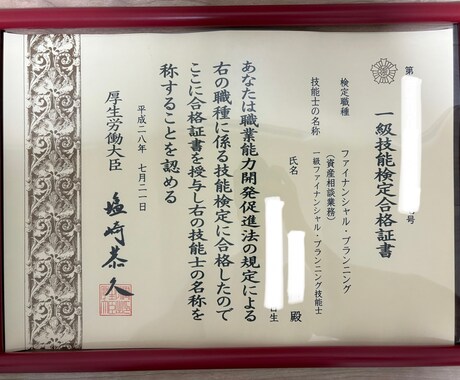 第
号
一級技能検定合格証書
検定職種　ファイナンシャル・プランニング
（資産相談業務）
技能士の名称　一級ファイナンシャル・プランニング技能士
氏名
殿
日生
あなたは職業能力開発促進法の規定による
右の職種に係る技能検定に合格したので
ここに合格証書を授与し右の技能士の名称を
称することを認める
平成二八年　七月二一日
厚生労働大臣
塩崎恭久